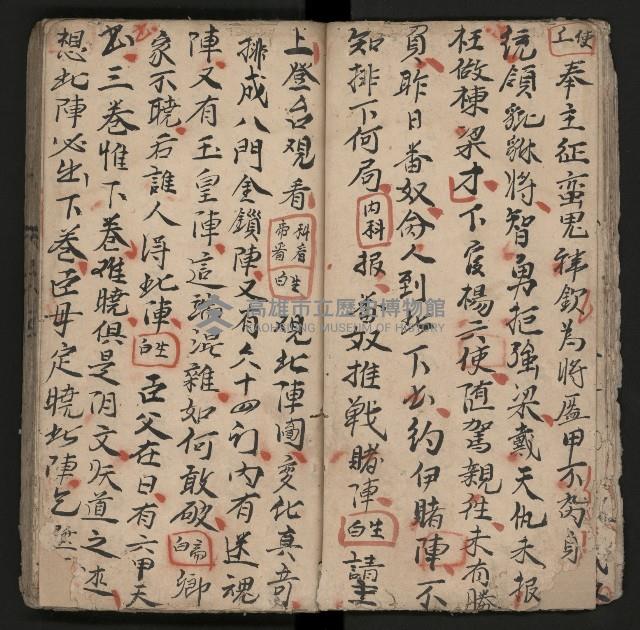 使上 奉主征蛮鬼神欽為將盔甲不离身
統領貔貅將智勇拒強梁戴天仇未报
枉做棟梁才下官楊六使随駕親往未有勝
負昨日番奴伤人到下去約伊賭陣不
知排下何局 内科 报番奴推戰賭陣 生白 請主
上登台观看 科看帝番 生白 观此陣圖变化真奇
排成八門金鎖陣又有六十四门内有迷魂
陣又有玉皇陣這端混雜如何敢破 帝白 卿
家不曉看誰人得此陣 生白 臣父在日有六甲天
书三卷惟下卷难曉俱是阴文妖道之
想此陣必出下卷臣母定曉此陣乞
高雄市立歷史博物館
KAOHSIUNG MUSEUM OF HISTORY